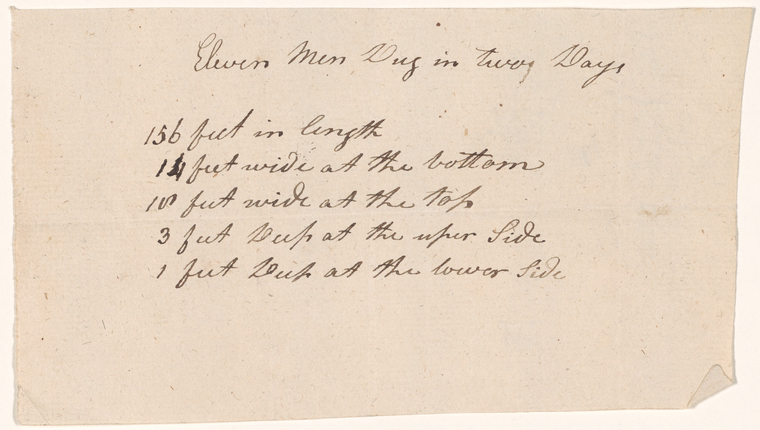 Eleven Men Dug in two Days
156 feet in length
14 feet wide at the bottom
18 feet wide at the top
3 feet Deep at the uper Side
1 feet Deep at the lower Side